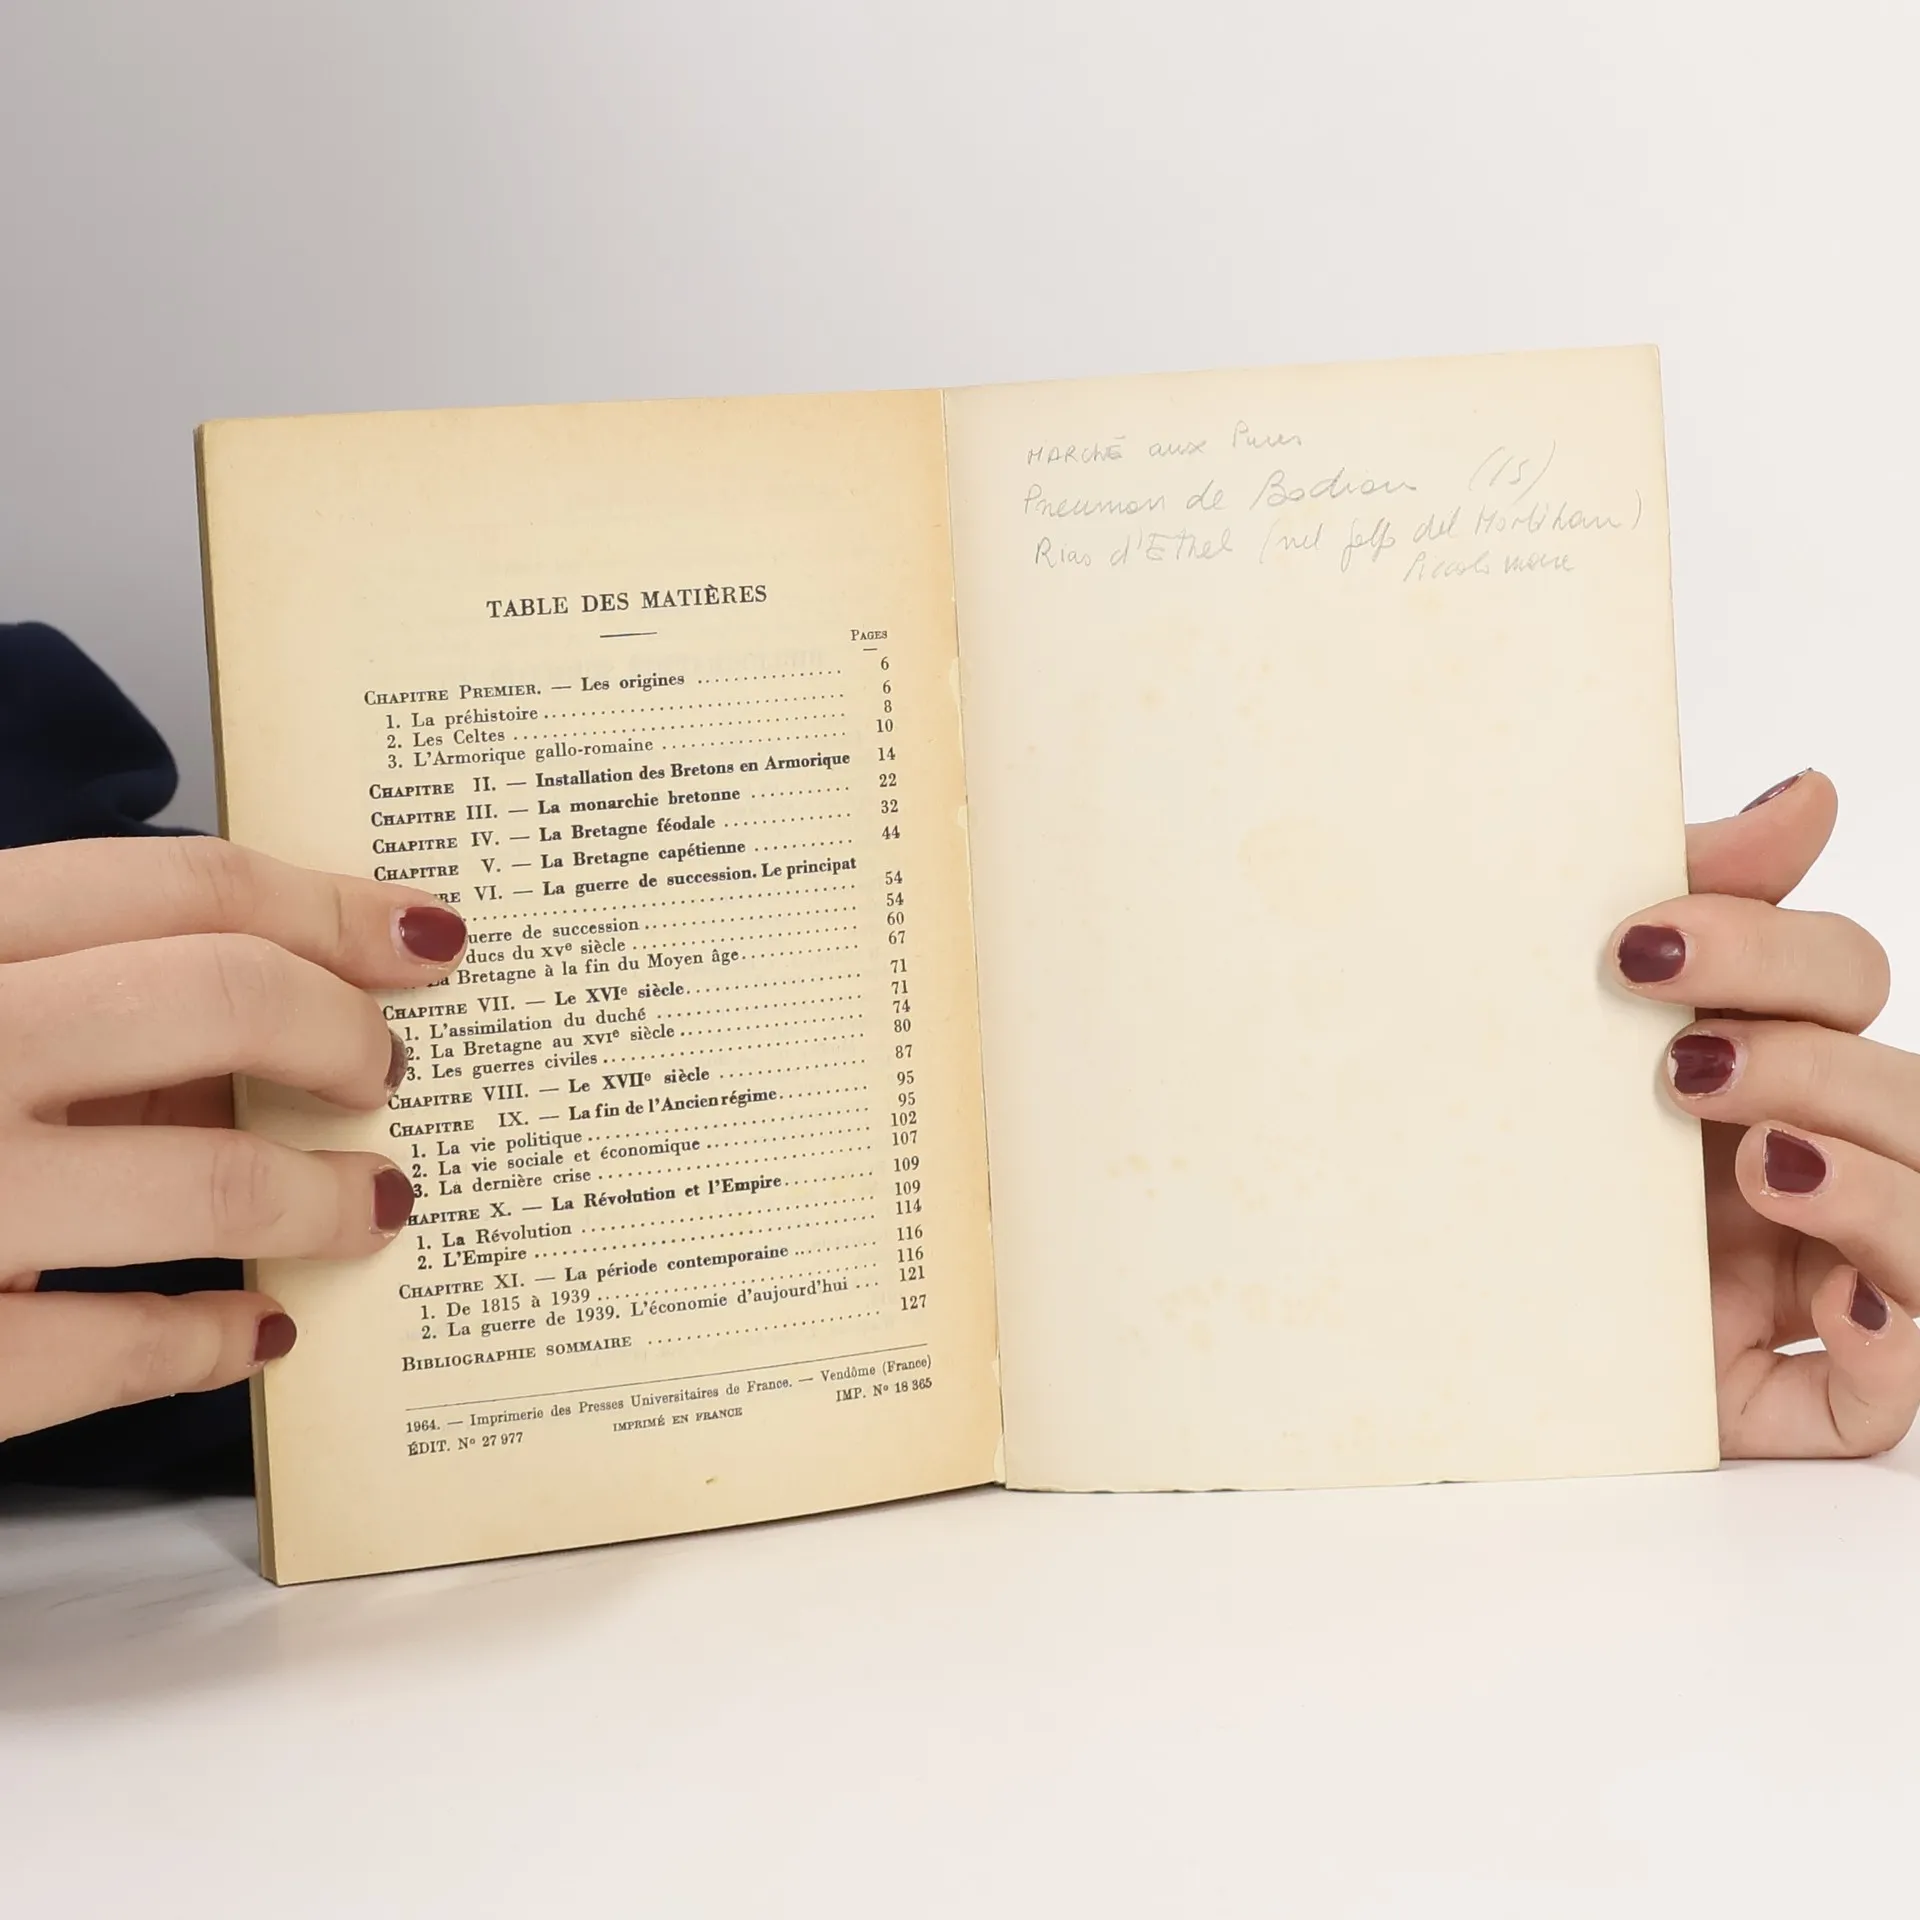 TABLE DES MATIÈRES
PAGES
CHAPITRE PREMIER. — Les origines ................ 6
1. La préhistoire .......................... 6
2. Les Celtes ............................. 8
3. L'Armorique gallo-romaine ................ 10
CHAPITRE II. — Installation des Bretons en Armorique 14
CHAPITRE III. — La monarchie bretonne ........... 22
CHAPITRE IV. — La Bretagne féodale ............. 32
CHAPITRE V. — La Bretagne capétienne ........... 44
RE VI. — La guerre de succession. Le principat
.................................... 54
uerre de succession .................... 54
ducs du XVe siècle .................... 60
La Bretagne à la fin du Moyen âge........... 67
CHAPITRE VII. — Le XVIe siècle................ 71
1. L'assimilation du duché .................. 71
2. La Bretagne au XVIe siècle ................ 74
3. Les guerres civiles ....................... 80
CHAPITRE VIII. — Le XVIIe siècle .............. 87
CHAPITRE IX. — La fin de l'Ancien régime......... 95
1. La vie politique ......................... 95
2. La vie sociale et économique .............. 102
3. La dernière crise ........................ 107
HAPITRE X. — La Révolution et l'Empire......... 109
1. La Révolution .......................... 109
2. L'Empire .............................. 114
CHAPITRE XI. — La période contemporaine ......... 116
1. De 1815 à 1939 ........................ 116
2. La guerre de 1939. L'économie d'aujourd'hui ... 121
BIBLIOGRAPHIE SOMMAIRE .................... 127
1964. — Imprimerie des Presses Universitaires de France. — Vendôme (France)
ÉDIT. No 27 977 IMPRIMÉ EN FRANCE IMP. No 18 365
MARCHÉ aux Puces
de (15)
Rias d'Ethel (nel golfo del Morbihan)